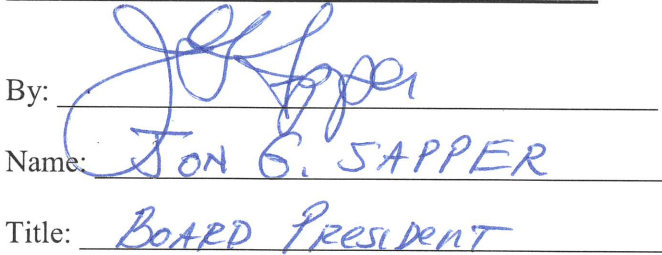 By: J G Sapper
Name: JON G. SAPPER
Title: BOARD PRESIDENT